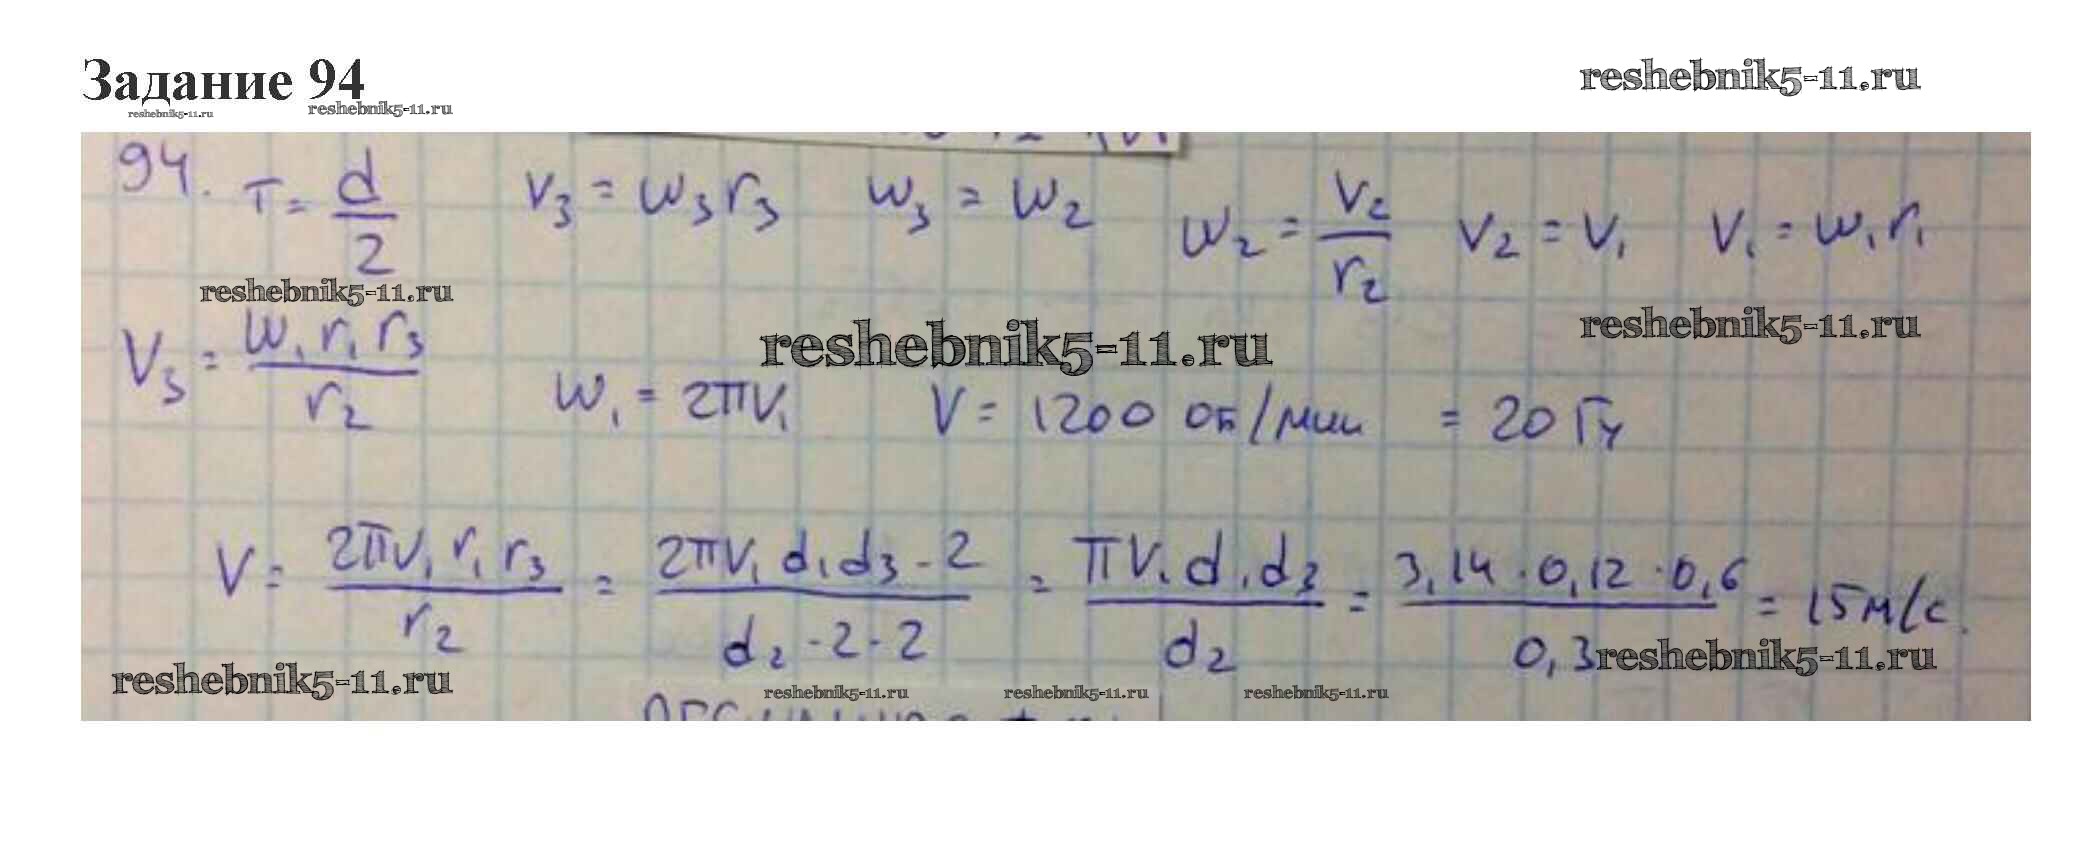 Задание 94
reshebnik5-11.ru
reshebnik5-11.ru
reshebnik5-11.ru
94. T = d/2 V₃ = ω₃r₃ ω₃ = ω₂ ω₂ = V₂/r₂ V₂ = V₁ V₁ = ω₁r₁
reshebnik5-11.ru
reshebnik5-11.ru
reshebnik5-11.ru
V₃ = ω₁r₁r₃/r₂ ω₁ = 2πV₁ V = 1200 об/мин = 20 Гц
V = 2πV₁r₁r₃/r₂ = 2πV₁d₁d₃·2/d₂·2·2 = πV₁d₁d₃/d₂ = 3,14·0,12·0,6/0,3 = 15 м/с.
reshebnik5-11.ru
reshebnik5-11.ru
reshebnik5-11.ru
reshebnik5-11.ru
reshebnik5-11.ru